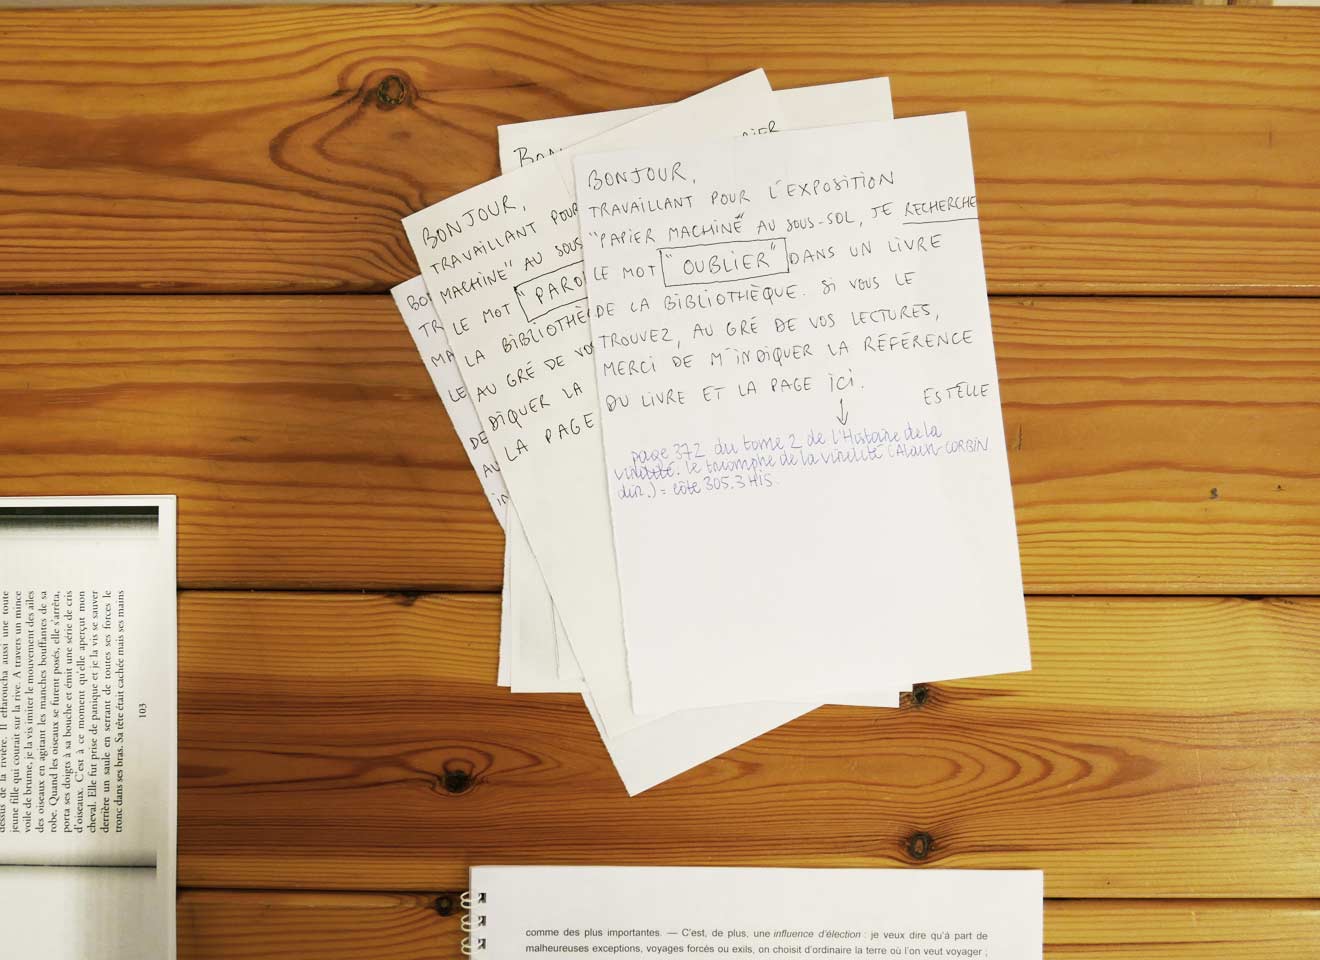 BONJOUR,
TRAVAILLANT POUR L'EXPOSITION
"PAPIER MACHINE" AU SOUS-SOL, JE RECHERCHE
LE MOT "OUBLIER" DANS UN LIVRE
DE LA BIBLIOTHÈQUE. SI VOUS LE
TROUVEZ, AU GRÉ DE VOS LECTURES,
MERCI DE M'INDIQUER LA RÉFÉRENCE
DU LIVRE ET LA PAGE ICI.
ESTELLE
page 372 du tome 2 de l'Histoire de la
virilité. le triomphe de la virilité (Alain CORBIN
dir.) = côte 305.3 HIS
BONJOUR,
TRAVAILLANT POUR
MACHINE" AU SOUS
LE MOT "PARO
LA BIBLIOTHÈ
AU GRÉ DE VO
DIQUER LA
LA PAGE
BON
BO
TR
MA
LE
DE
AU
dessus de la rivière. Il effaroucha aussi une toute
jeune fille qui courait sur la rive. A travers un mince
voile de brume, je la vis imiter le mouvement des ailes
des oiseaux en agitant les manches bouffantes de sa
robe. Quand les oiseaux se furent posés, elle s'arrêta,
porta ses doigts à sa bouche et émit une série de cris
d'oiseaux. C'est à ce moment qu'elle aperçut mon
cheval. Elle fut prise de panique et je la vis se sauver
derrière un saule en serrant de toutes ses forces le
tronc dans ses bras. Sa tête était cachée mais ses mains
103
comme des plus importantes. — C'est, de plus, une influence d'élection : je veux dire qu'à part de
malheureuses exceptions, voyages forcés ou exils, on choisit d'ordinaire la terre où l'on veut voyager ;